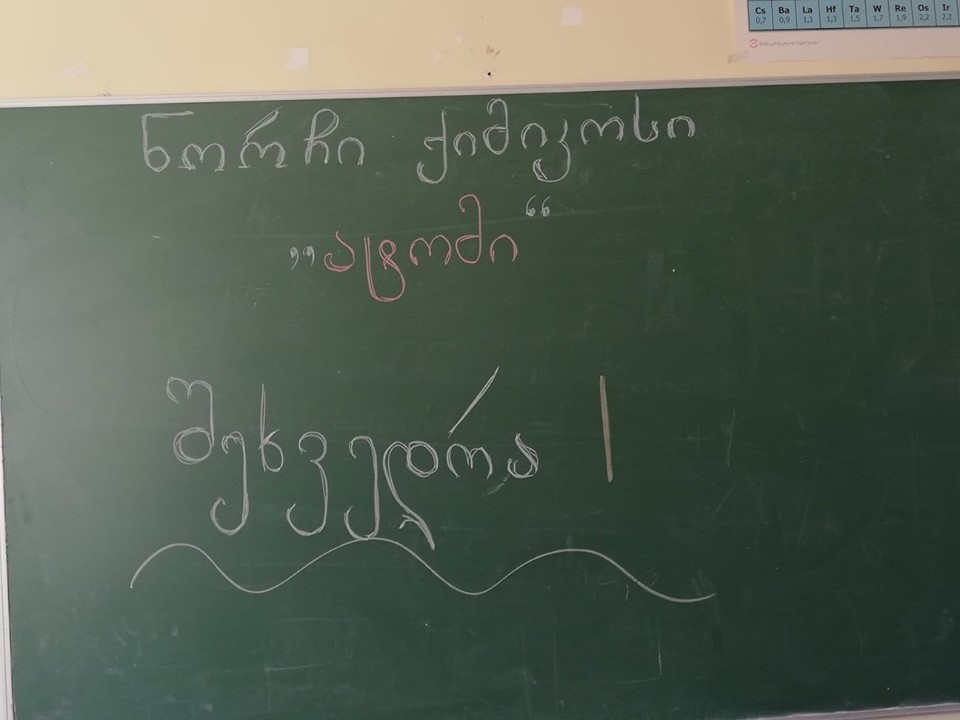 Cs Ba La Hf Ta W Re Os Ir
0,7 0,9 1,1 1,3 1,5 1,7 1,9 2,2 2,2
ნორჩი ქიმიკოსი
„ატომი“
შეხვედრა I